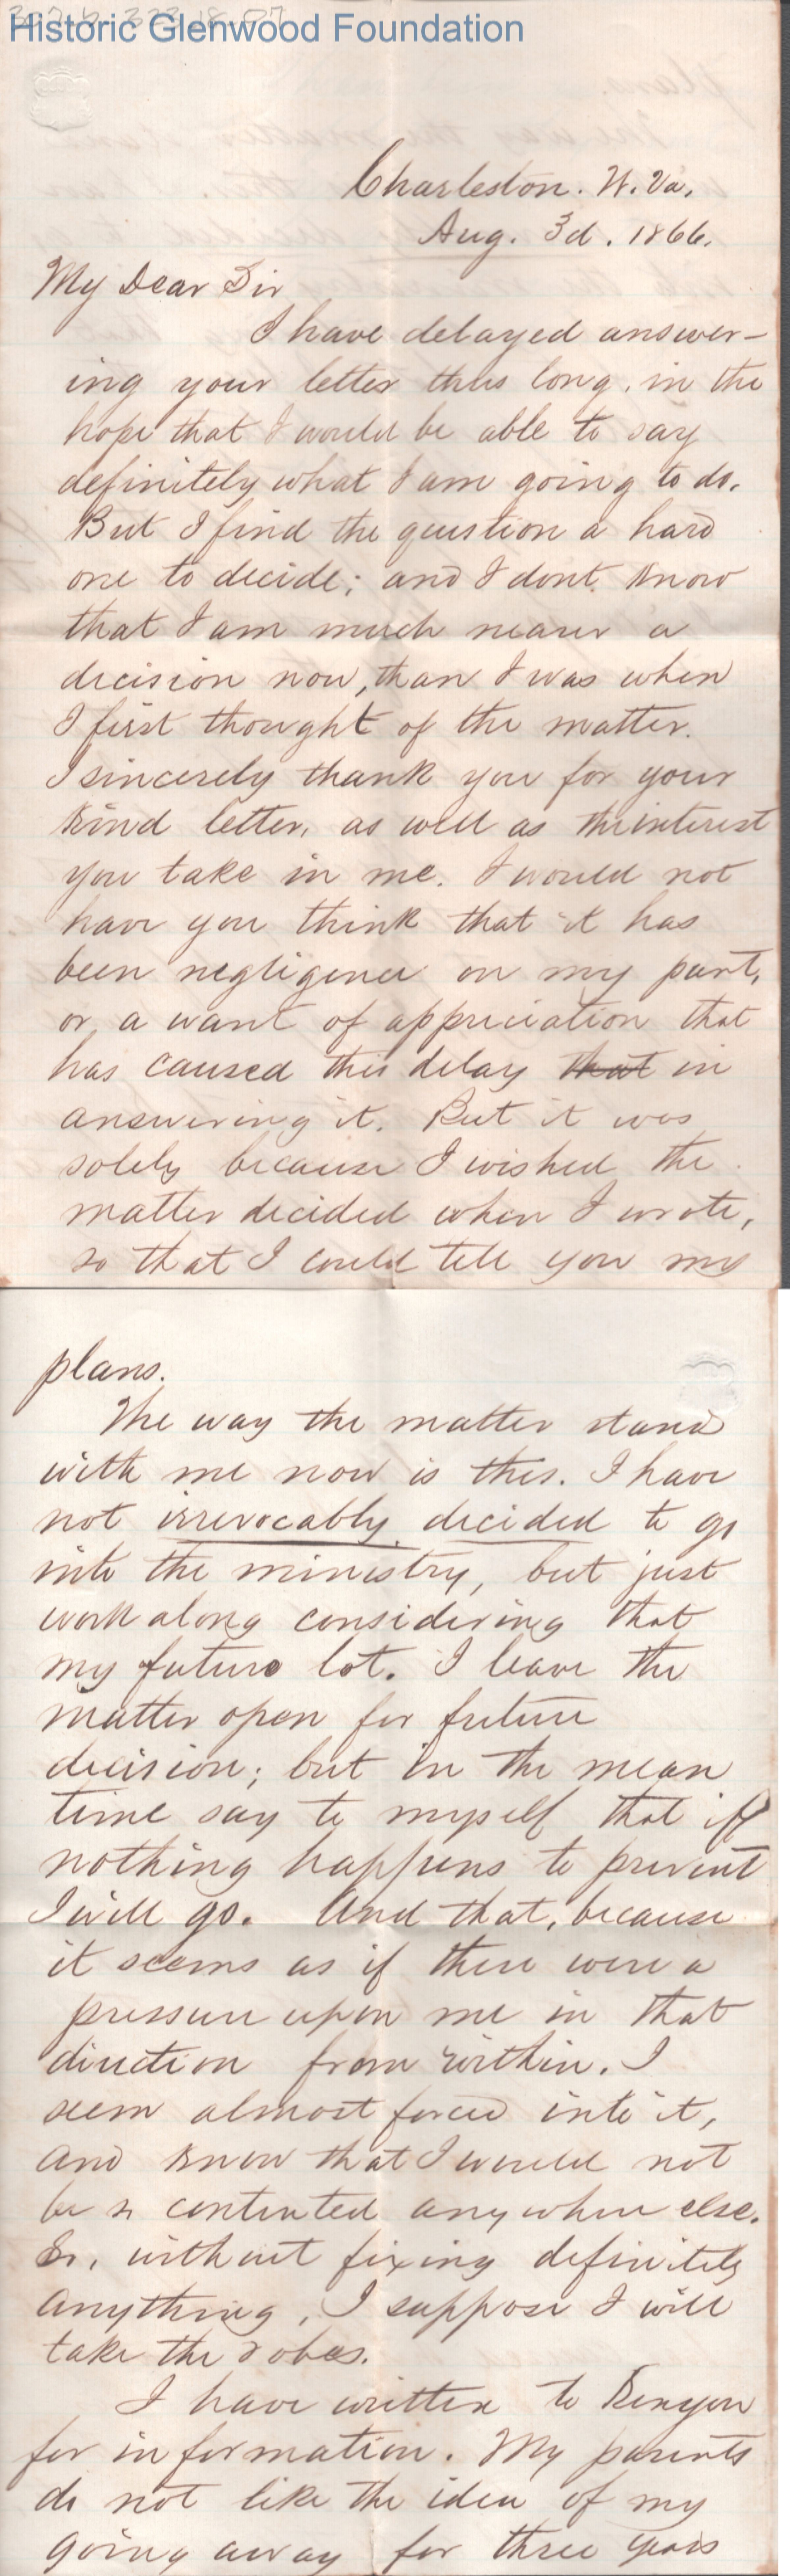 307.6.323.18.07
Historic Glenwood Foundation
Charleston. W. Va.
Aug. 3d. 1866.
My Dear Sir
I have delayed answer-
ing your letter thus long, in the
hope that I would be able to say
definitely what I am going to do.
But I find the question a hard
one to decide; and I dont know
that I am much nearer a
decision now, than I was when
I first thought of the matter.
I sincerely thank you for your
kind letter, as well as the interest
you take in me. I would not
have you think that it has
been negligence on my part,
or a want of appreciation that
has caused this delay that in
answering it. But it was
solely because I wished the
matter decided when I wrote,
so that I could tell you my
plans.
The way the matter stand
with me now is this. I have
not irrevocably decided to go
into the ministry, but just
work along considering that
my future lot. I leave the
matter open for future
decision; but in the mean
time say to myself that if
nothing happens to prevent
I will go. And that, because
it seems as if there were a
pressure upon me in that
direction from within. I
seem almost forced into it,
and know that I would not
be so contented anywhere else.
So, without fixing definitely
anything, I suppose I will
take the robes.
I have written to Kenyon
for information. My parents
do not like the idea of my
going away for three years